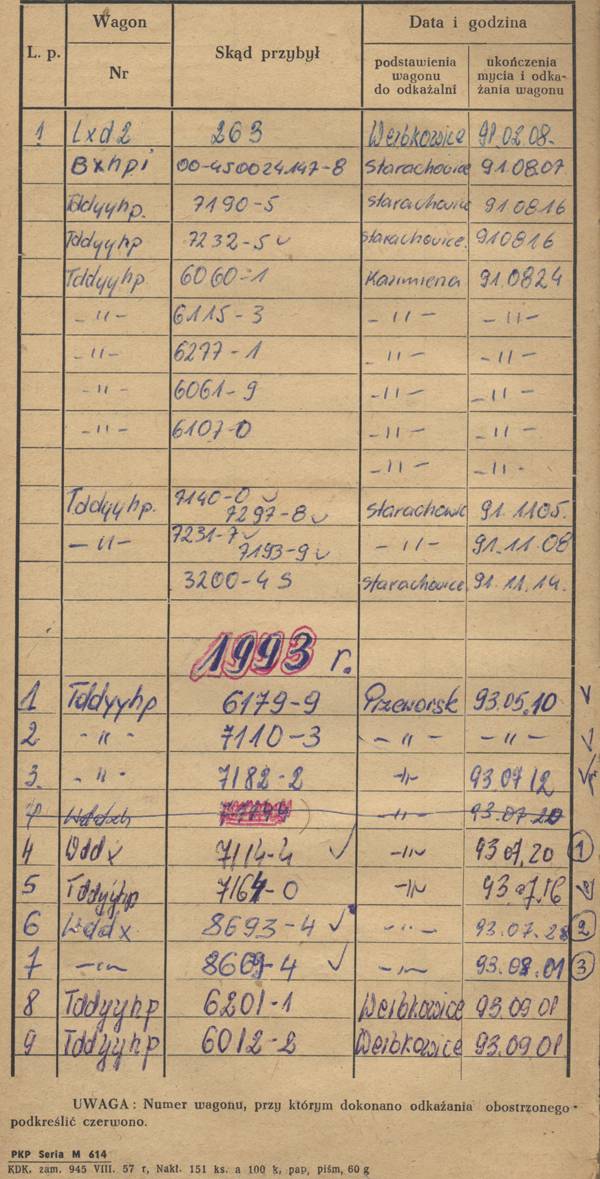 L. p. Wagon Nr Skąd przybył Data i godzina
podstawienia wagonu do odkażalni ukończenia mycia i odka-żania wagonu
1 Lxd2 263 Werbkowice 91.02.08.
Bxhpi 00-450024147-8 Starachowice 91.08.07
Tddyyhp. 7190-5 Starachowice 91.08.16
Tddyyhp 7232-5 v Starachowice. 910816
Tddyyhp 6060-1 Kazimierza 91.0824
-"- 6115-3 -"- -"-
-"- 6277-1 -"- -"-
-"- 6061-9 -"- -"-
-"- 6107-0 -"- -"-
-"- -"-
Tddyyhp. 7140-0 v 7297-8 v Starachowic 91.1105.
-"- 7231-7 v 7193-9 v -"- 91.11.08
3200-4 S Starachowice 91.11.14.
1993 r.
1 Tddyyhp 6179-9 Przeworsk 93.05.10 v
2 -"- 7110-3 -"- -"- v
3. -"- 7182-2 -"- 93.07.12 v
-"- 93.07.20
4 Wddx 7114-4 v -"- 93.07.20 1
5 Tddyyhp 7164-0 -"- 93.07.16
6 Wddx 8693-4 v -"- 93.07.28 2
7 -"- 8669-4 v -"- 93.08.01 3
8 Tddyyhp 6201-1 Werbkowice 93.09.01
9 Tddyyhp 6012-2 Werbkowice 93.09.01
UWAGA: Numer wagonu, przy którym dokonano odkażania obostrzonego
podkreślić czerwono.
PKP Seria M 614
KDK. zam. 945 VIII. 57 r, Nakł. 151 ks. a 100 k, pap, piśm, 60 g